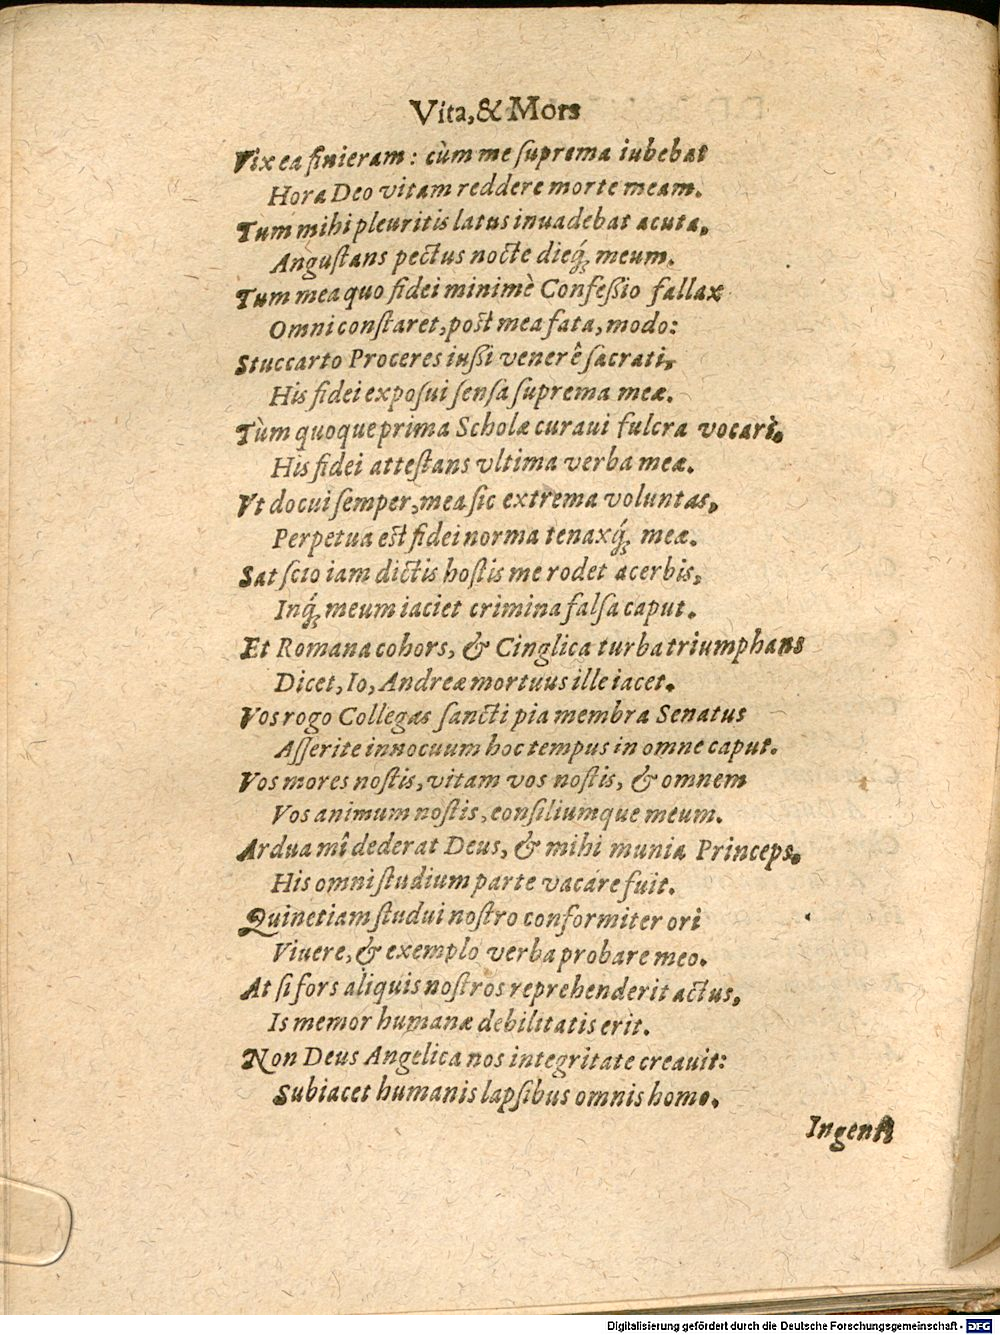 Vita, & Mors
Vix ea finieram: cùm me ſuprema iubebat
Hora Deo vitam reddere morte meam.
Tum mihi pleuritis latus inuadebat acuta,
Anguſtans pectus nocte dieq́; meum.
Tum mea quo fidei minimè Confeſsio fallax
Omni conſtaret, poſt mea fata, modo:
Stuccarto Proceres iuſsi venerê ſacrati,
His fidei expoſui ſenſa ſuprema meæ.
Tùm quoque prima Scholæ curaui fulcra vocari.
His fidei atteſtans vltima verba meæ.
Vt docui ſemper, mea ſic extrema voluntas,
Perpetua eſt fidei norma tenaxq́; meæ.
Sat ſcio iam dictis hoſtis me rodet acerbis,
Inq́; meum iaciet crimina falſa caput.
Et Romana cohors, & Cinglica turba triumphans
Dicet, Io, Andreæ mortuus ille iacet.
Vos rogo Collegas ſancti pia membra Senatus
Aſſerite innocuum hoc tempus in omne caput.
Vos mores noſtis, vitam vos noſtis, & omnem
Vos animum noſtis, conſiliumque meum.
Ardua mî dederat Deus, & mihi munia Princeps.
His omni ſtudium parte vacare fuit.
Quin etiam ſtudui noſtro conformiter ori
Viuere, & exemplo verba probare meo.
At ſi fors aliquis noſtros reprehenderit actus,
Is memor humanæ debilitatis erit.
Non Deus Angelica nos integritate creauit:
Subiacet humanis lapſibus omnis homo.
Ingenti
Digitalisierung gefördert durch die Deutsche Forschungsgemeinschaft - DFG